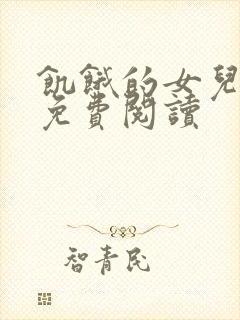 飢餓的女兒
免費閱讀
智青民